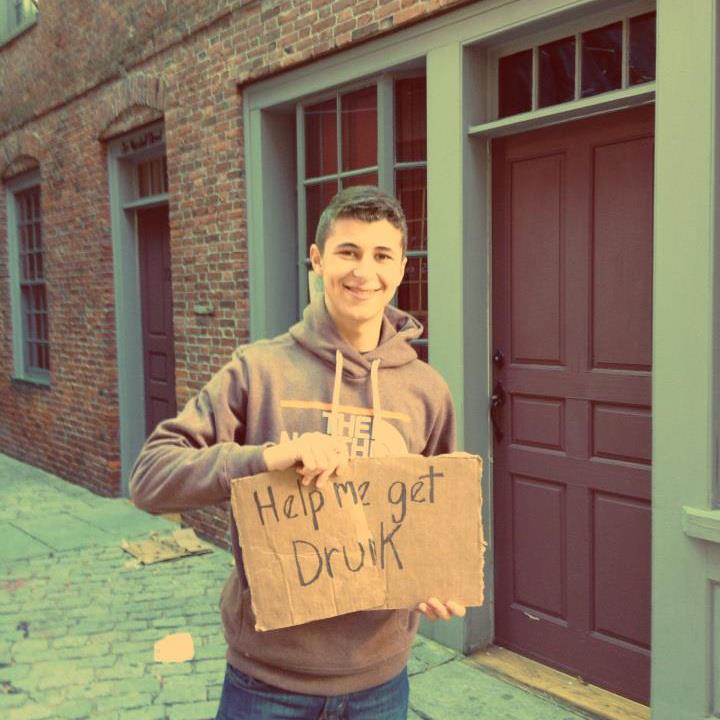 THE
NORTH
Help me get
Drunk